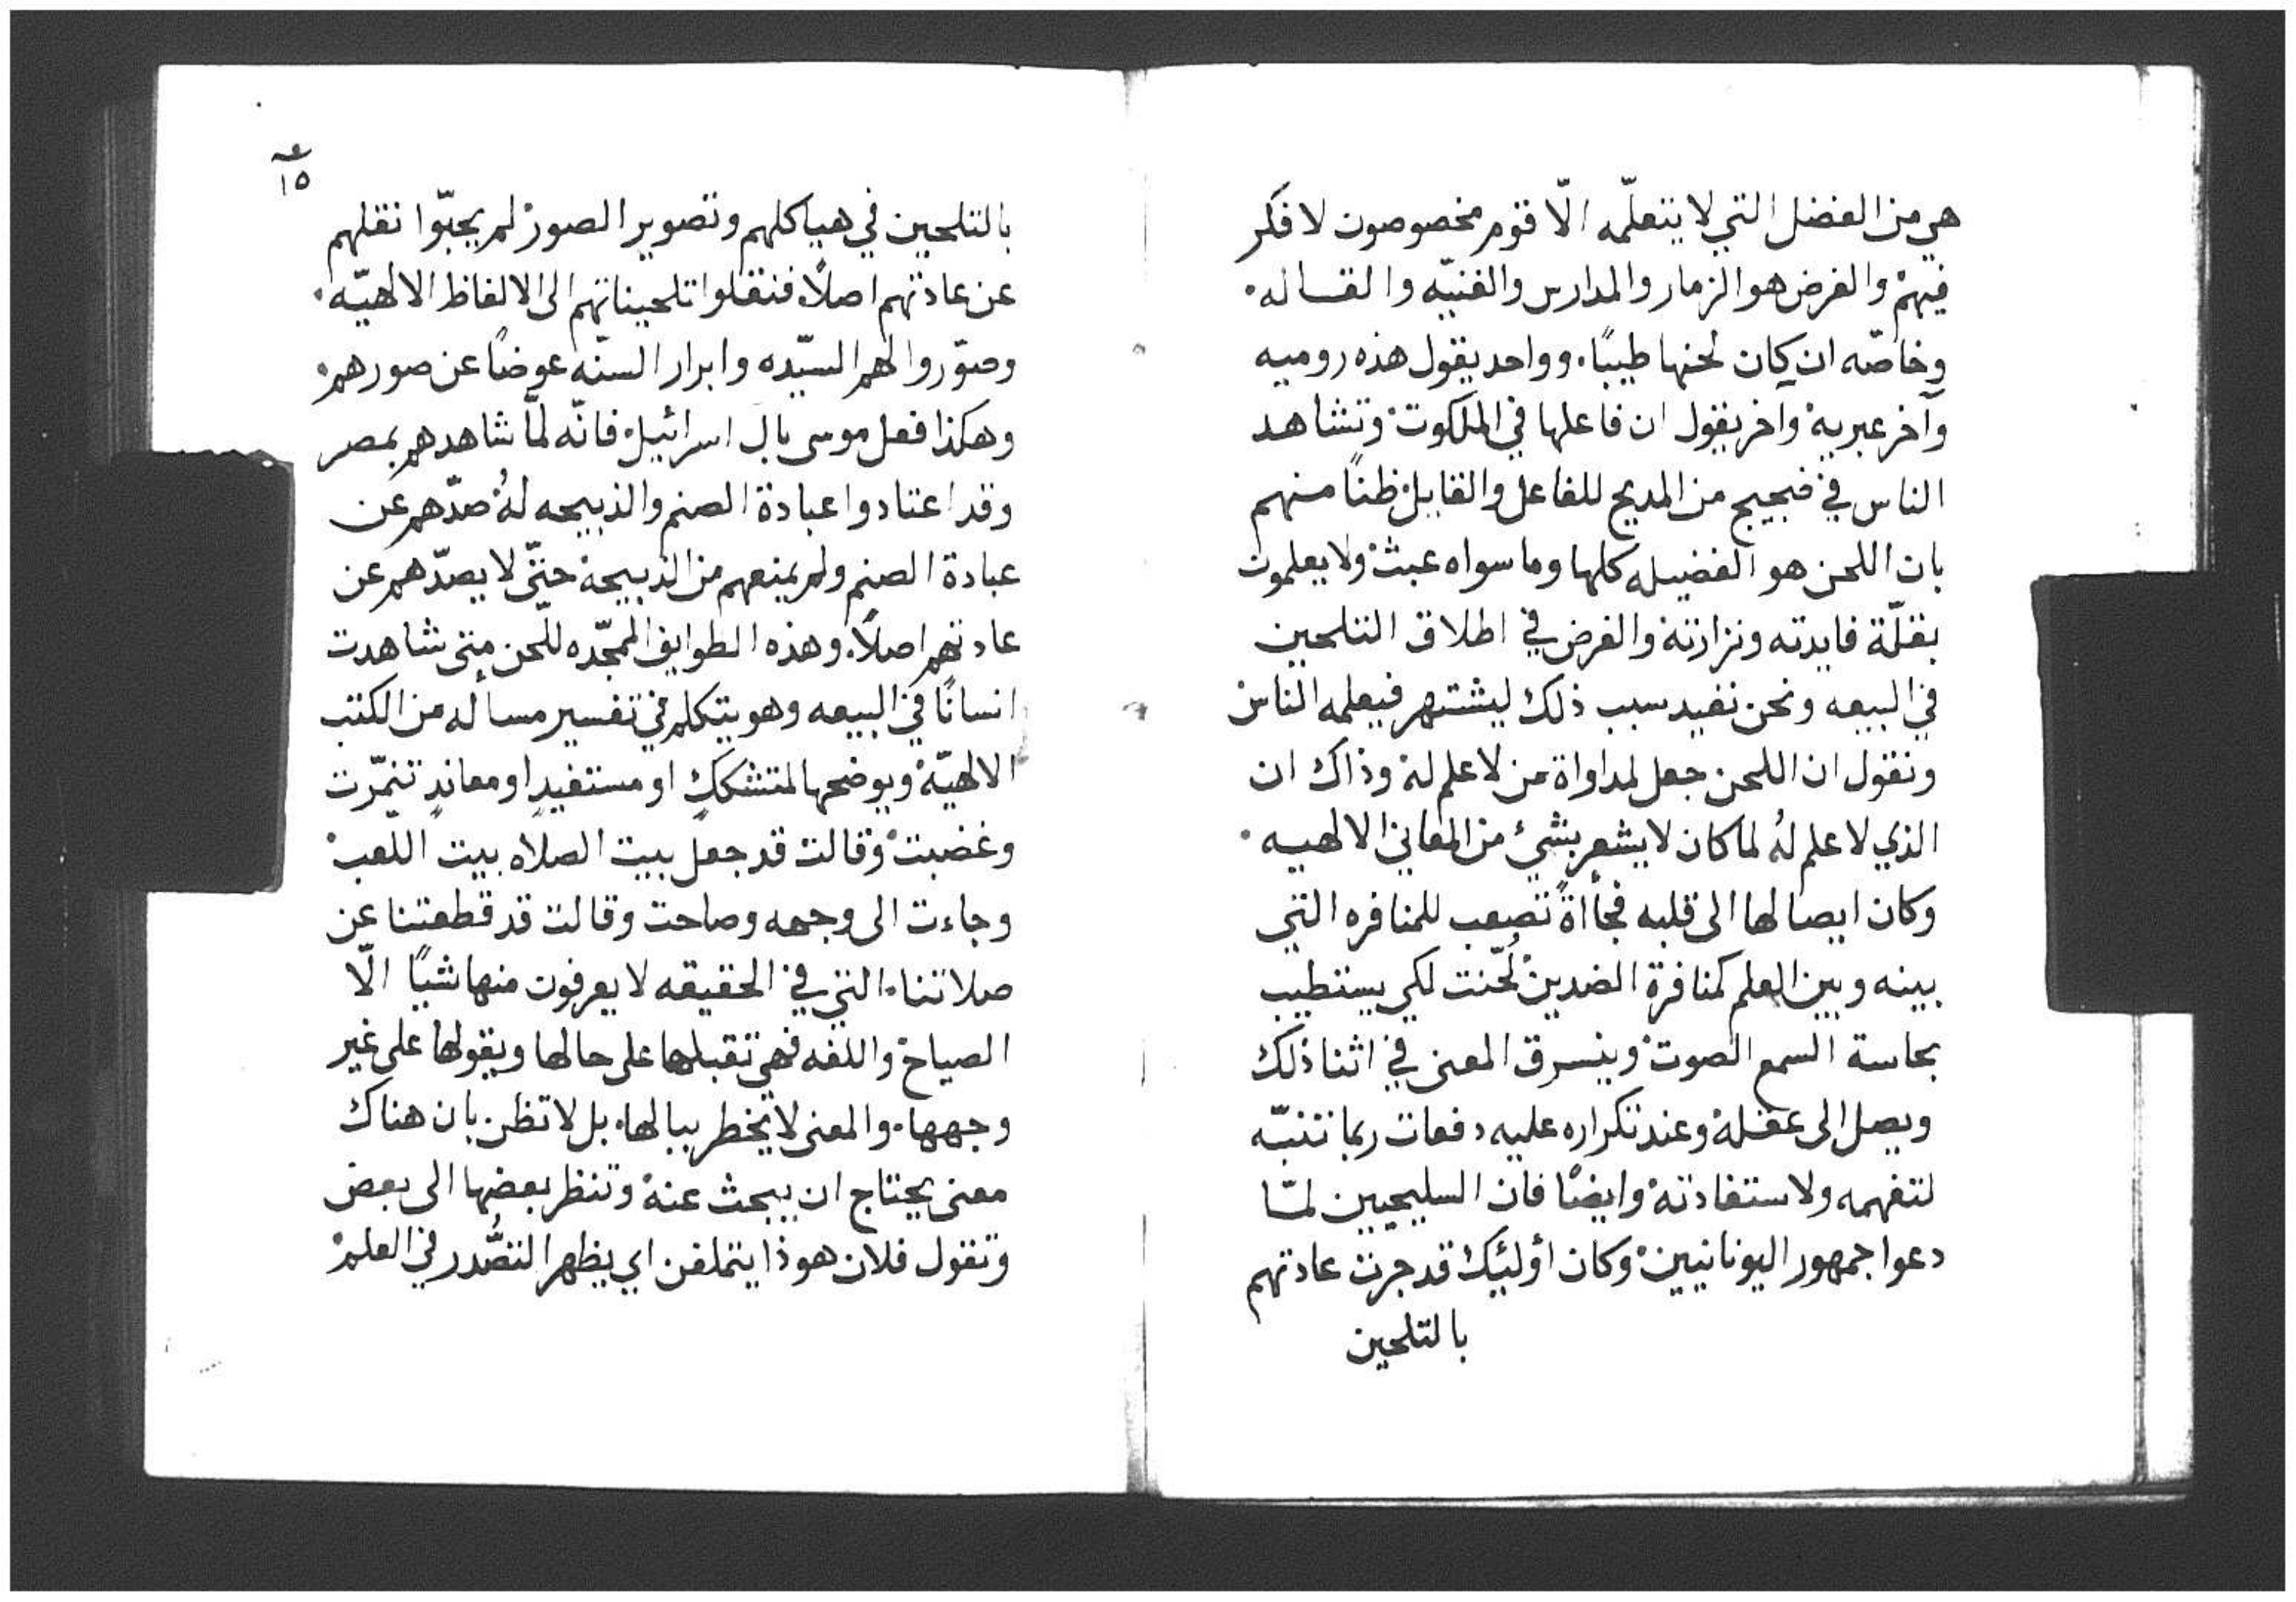 هي من الفضل التي لا يتعلّمه الّا قوم مخصوصون لا فكر
فيهم والغرض هو الزمار والمدارس والغنيّه والقساله
وخاصّه ان كان لحنها طيبًا. وواحد يقول هذه روميه
وآخر عبريه وآخر يقول ان فاعلها في الملكوت وتشاهد
الناس في ضجيج من المديح للفاعل والقابل ظنًا منهم
بان اللحن هو الفضيله كلها وما سواه عبث ولا يعلمون
بقلّة فايدته ونزارته والغرض في اطلاق التلحين
في البيعه ونحن نفيد سبب ذلك ليشتهر فيعلمه الناس
ونقول ان اللحن جعل لمداواة من لا علم له وذاك ان
الذي لا علم لهُ لما كان لا يشعر بشيء من المعاني الالهيه
وكان ايصالها الى قلبه فجأاةً تصعب للمنافره التي
بينه وبين العلم كمنافرة الضدين لُحّنت لكي يستطيب
بحاسة السمع الصوت وينسرق المعنى في اثنا ذلك
ويصل الى عقله وعند تكراره عليه دفعات ربما تنبّه
لتفهمه ولاستفادته وايضًا فان السليحيين لمّا
دعوا جمهور اليونانيين وكان أولئيك قد جرت عادتهم
بالتلحين
١٥
بالتلحين في هياكلهم وتصوير الصور لم يحبّوا نقلهم
عن عادتهم اصلًا فنقلوا تلحيناتهم الى الالفاظ الالهيّه
وصوّروا لهم السيّده وابرار السنّه عوضًا عن صورهم
وهكذا فعل موسى بال اسرائيل فانّه لمّا شاهدهم بمصر
وقد اعتادوا عبادة الصنم والذبيحه لهُ صدّهم عن
عبادة الصنم ولم يمنعهم من الذبيحة حتّى لا يصدّهم عن
عادتهم اصلًا. وهذه الطوايف الممجّده للّحن متى شاهدت
انسانًا في البيعه وهو يتكلم في تفسير مسأله من الكتب
الالهيّة ويوضحها لمتشككٍ او مستفيدٍ او معاندٍ تنمّرت
وغضبت وقالت قد جعل بيت الصلاه بيت اللعب
وجاءت الى وجهه وصاحت وقالت قد قطعتنا عن
صلاتنا. التي في الحقيقه لا يعرفون منها شيًا الّا
الصياح واللغه فهي تقبلها على حالها ويقولها على غير
وجهها. والمعنى لا يخطر ببالها. بل لا تظن بان هناك
معنى يحتاج ان يبحث عنه وتنظر بعضها الى بعض
وتقول فلان هوذا يتملفن اي يظهر التصُّدر في العلم